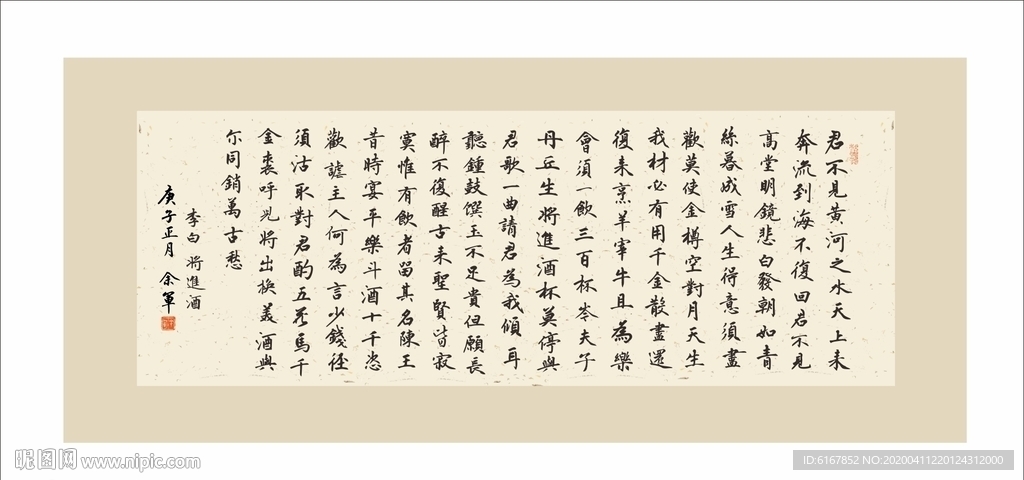 君不見黃河之水天上来
奔流到海不復回君不見
高堂明鏡悲白發朝如青
絲暮成雪人生得意須盡
歡莫使金樽空對月天生
我材必有用千金散盡還
復来烹羊宰牛且為樂
會須一飲三百杯岑夫子
丹丘生將進酒杯莫停與
君歌一曲請君為我傾耳
聽鍾鼓饌玉不足貴但願長
醉不復醒古来聖賢皆寂
寞惟有飲者留其名陳王
昔時宴平樂斗酒十千恣
歡謔主人何為言少錢徑
須沽取對君酌五花馬千
金裘呼兒將出換美酒與
尔同銷萬古愁
李白將進酒
庚子正月 余軍
昵图网 www.nipic.com
ID:6167852 NO:20200411220124312000